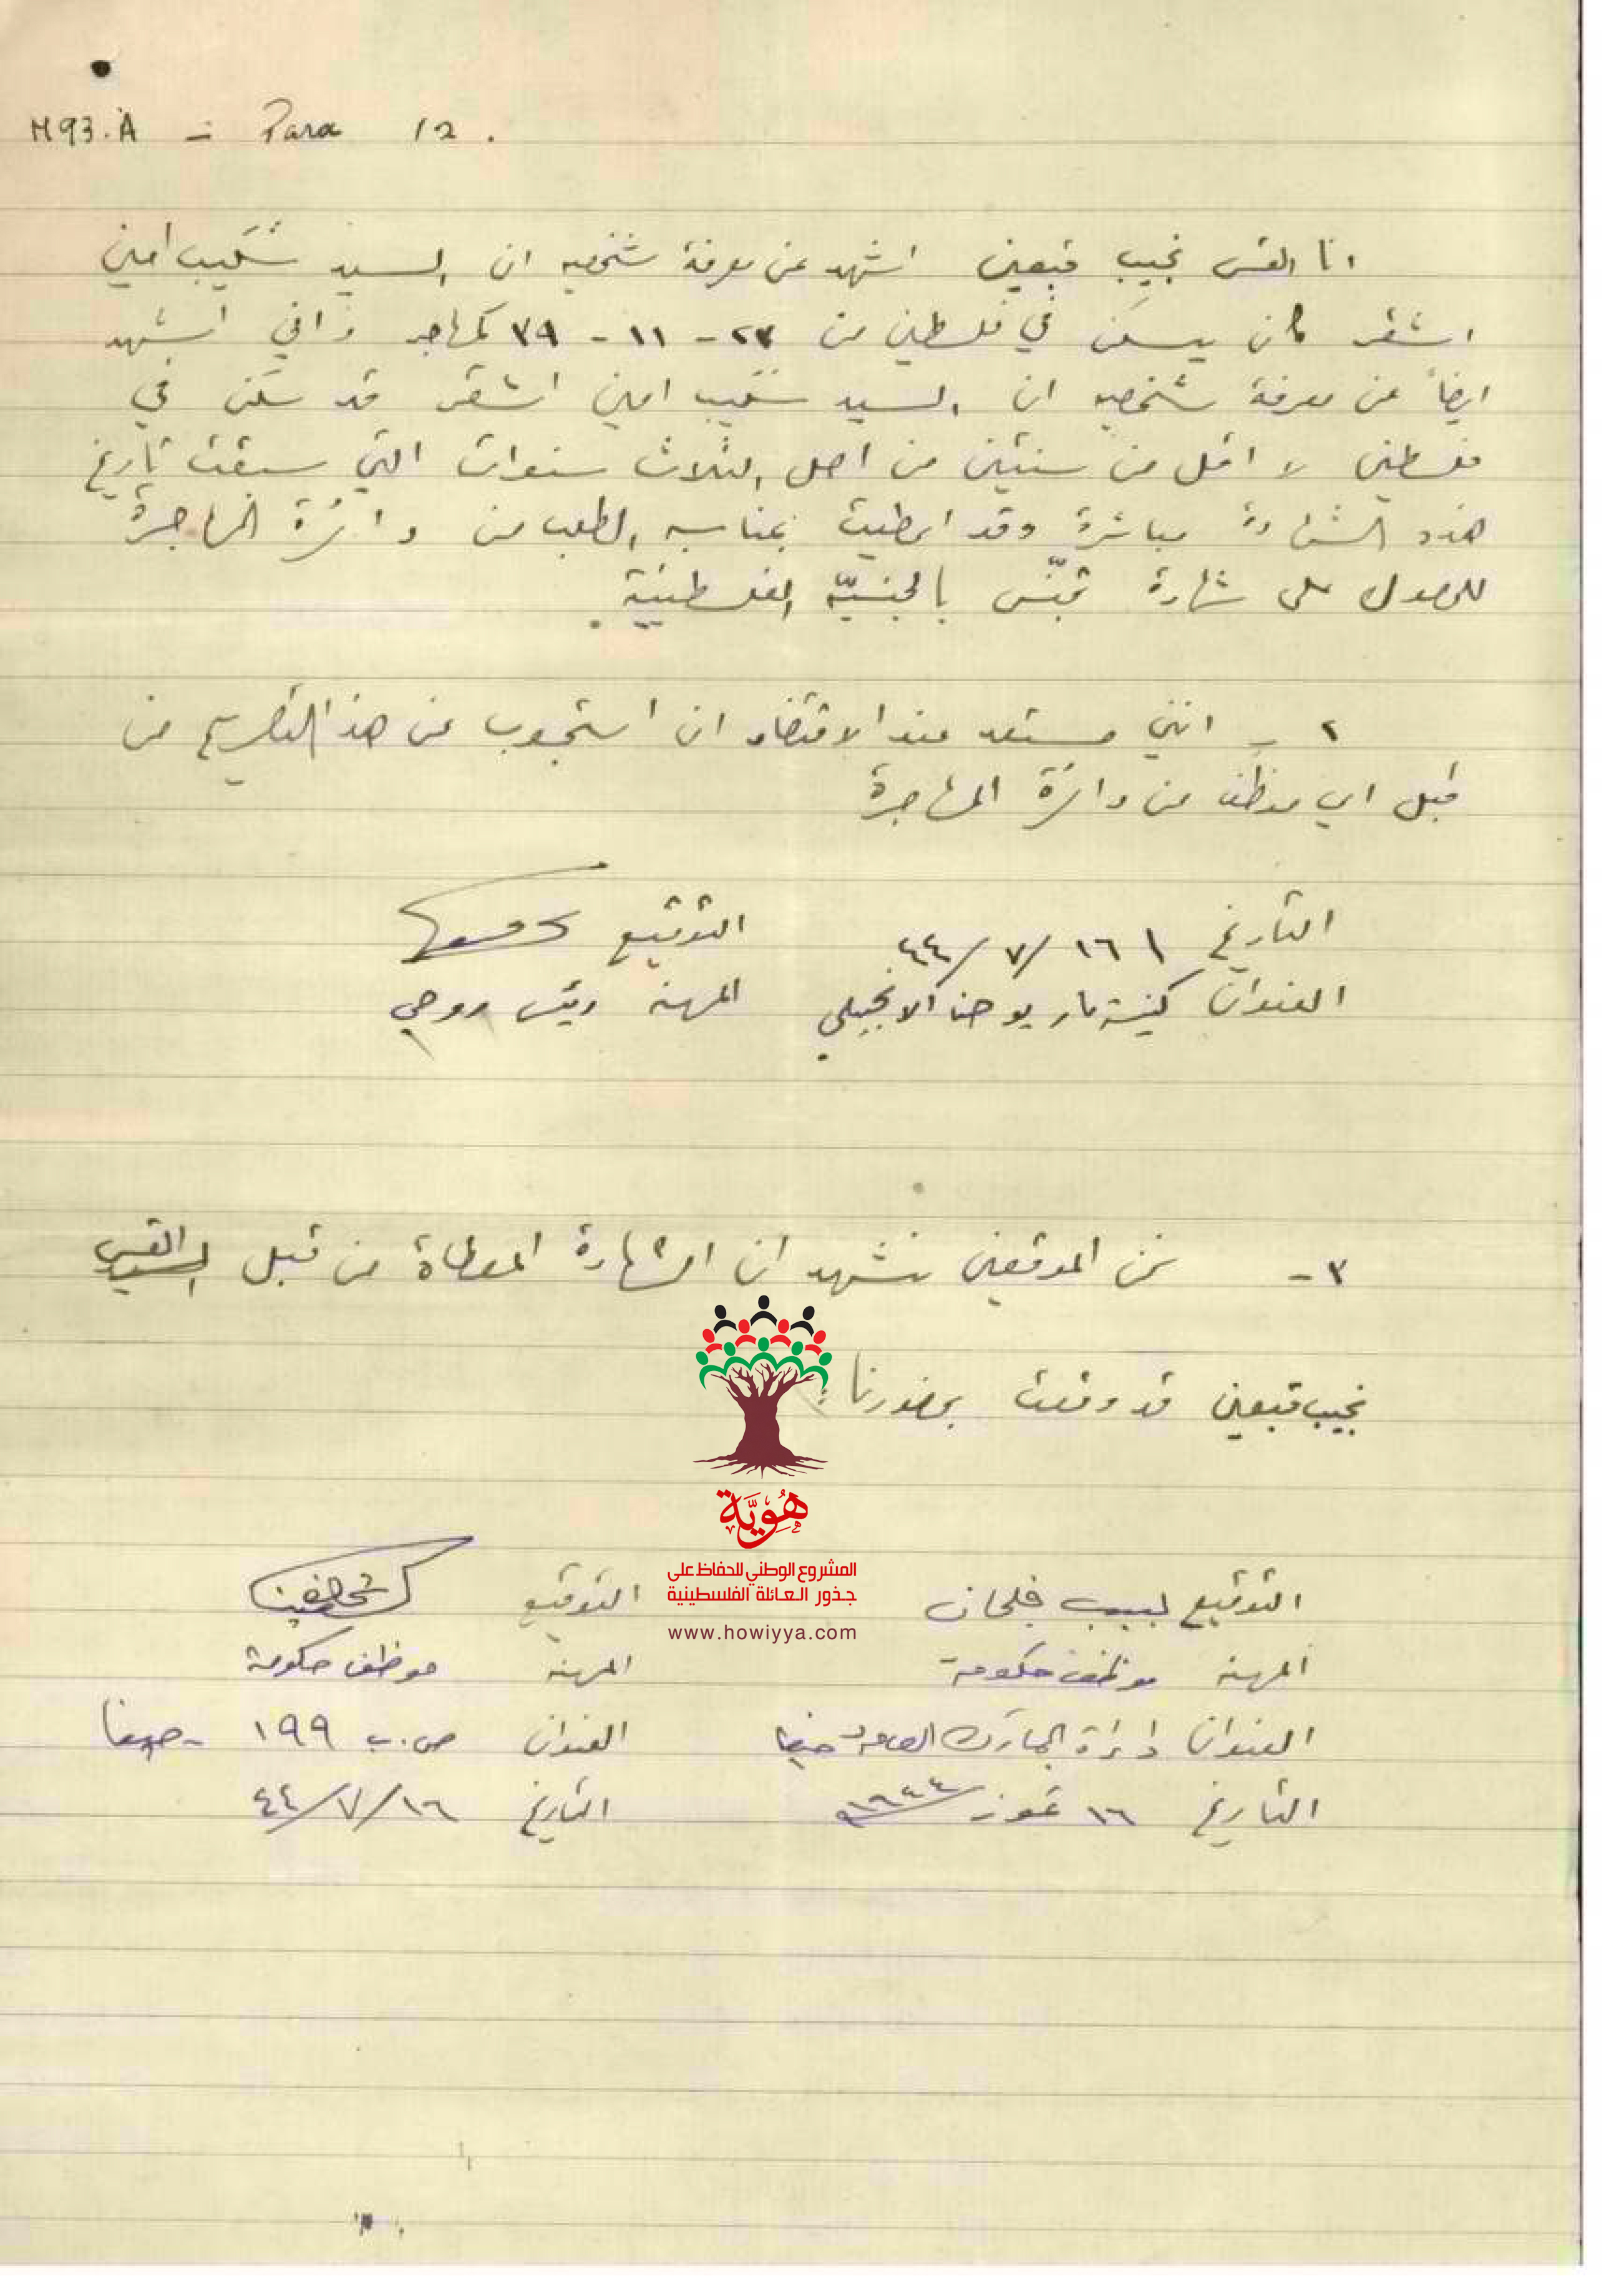 M93.A - Para 12.
انا القس نجيب قبعين اشهد عن معرفة شخصيه ان السيد شكيب امين
اشقر كان يسكن في فلسطين من ٢٣ - ١١ - ٣٩ كمهاجر واني اشهد
ايضاً عن معرفة شخصيه ان السيد شكيب امين اشقر قد سكن في
فلسطين لا اقل من سنتين من اصل الثلاث سنوات التي سبقت تاريخ
هذه الشهادة مباشرة وقد اعطيت بمناسبه الطلب من دائرة المهاجرة
للحصول على شهادة تجنّس بالجنسيّه الفلسطينية.
٢ - انني مستعد عند الاقتضاء ان استجوب عن هذا التصريح من
قبل اي موظف من دائرة المهاجرة
التاريخ ١٦ / ٧ / ٤٤ التوقيع
العنوان كنيسة مار يوحنا الانجيلي المهنه رئيس روحي
٣ - نحن الموقعين نشهد ان الشهادة المعطاة من قبل السيد القس
نجيب قبعين قد وقعت بحضورنا:
هُوِيَّة
المشروع الوطني للحفاظ على
جذور العائلة الفلسطينية
www.howiyya.com
التوقيع لبيب التوقيع
المهنه موظف حكومة المهنه موظف حكومة
العنوان دائرة الجمارك العامه حيفا العنوان ص. ب ١٩٩ - حيفا
التاريخ ١٦ تموز ١٩٤٤ التاريخ ١٦ / ٧ / ٤٤